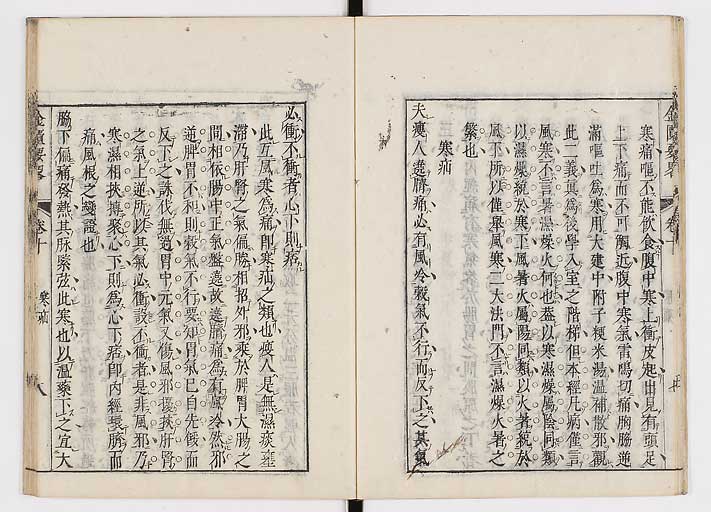 寒痛嘔不能飲食腹中寒上衝皮起出見有頭足
上下痛而不可觸近腹中寒氣雷鳴切痛胸脇逆
滿嘔吐爲寒用大建中附子粳米湯温補散邪觀
此二義眞爲後學入室之階梯但本經凡病僅言
風寒不言暑濕燥火何也蓋以寒濕燥屬陰同類
以濕燥統於寒下風暑火屬陽同類以火暑統於
風下所以僅舉風寒二大法門不言濕燥火暑之
繁也
寒疝
夫瘦人遶臍痛必有風冷穀氣不行而反下之其氣
必衝不衝者心下則痞
此互風寒爲痛即寒疝之類也瘦人是無濕痰壅
滯乃肝腎之氣偏勝相招外邪乘於脾胃大腸之
間相依腸中正氣盤遶故遶臍痛爲有風冷然邪
逆脾胃不和則穀氣不行要知胃氣已自先餒而
反下之誅伐無過胃中元氣又傷風邪復挾肝腎
之氣上逆所以其氣必衝設不衝者是非風邪乃
寒濕相挾摶聚心下則爲心下痞即内經環臍而
痛風根之變證也
脇下偏痛發熱其脉緊弦此寒也以温藥下之宜大
金匱要畧
卷十
寒疝
八